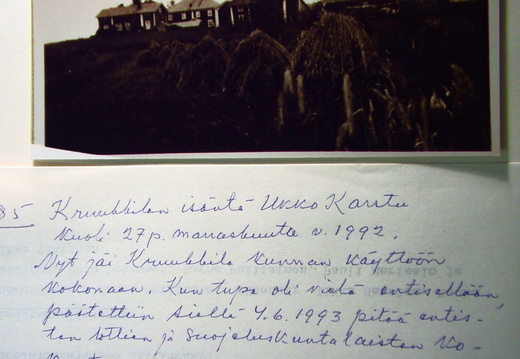 85 Kruubbilan isäntä Ukko Karstu
kuoli 27 p. marraskuuta v. 1992.
Nyt jäi Kruubbila kunnan käyttöön
kokonaan. Kun tupa oli vielä entisellään,
päätettiin siellä 4.6.1993 pitää entis-
ten lottien ja suojeluskuntalaisten ko-